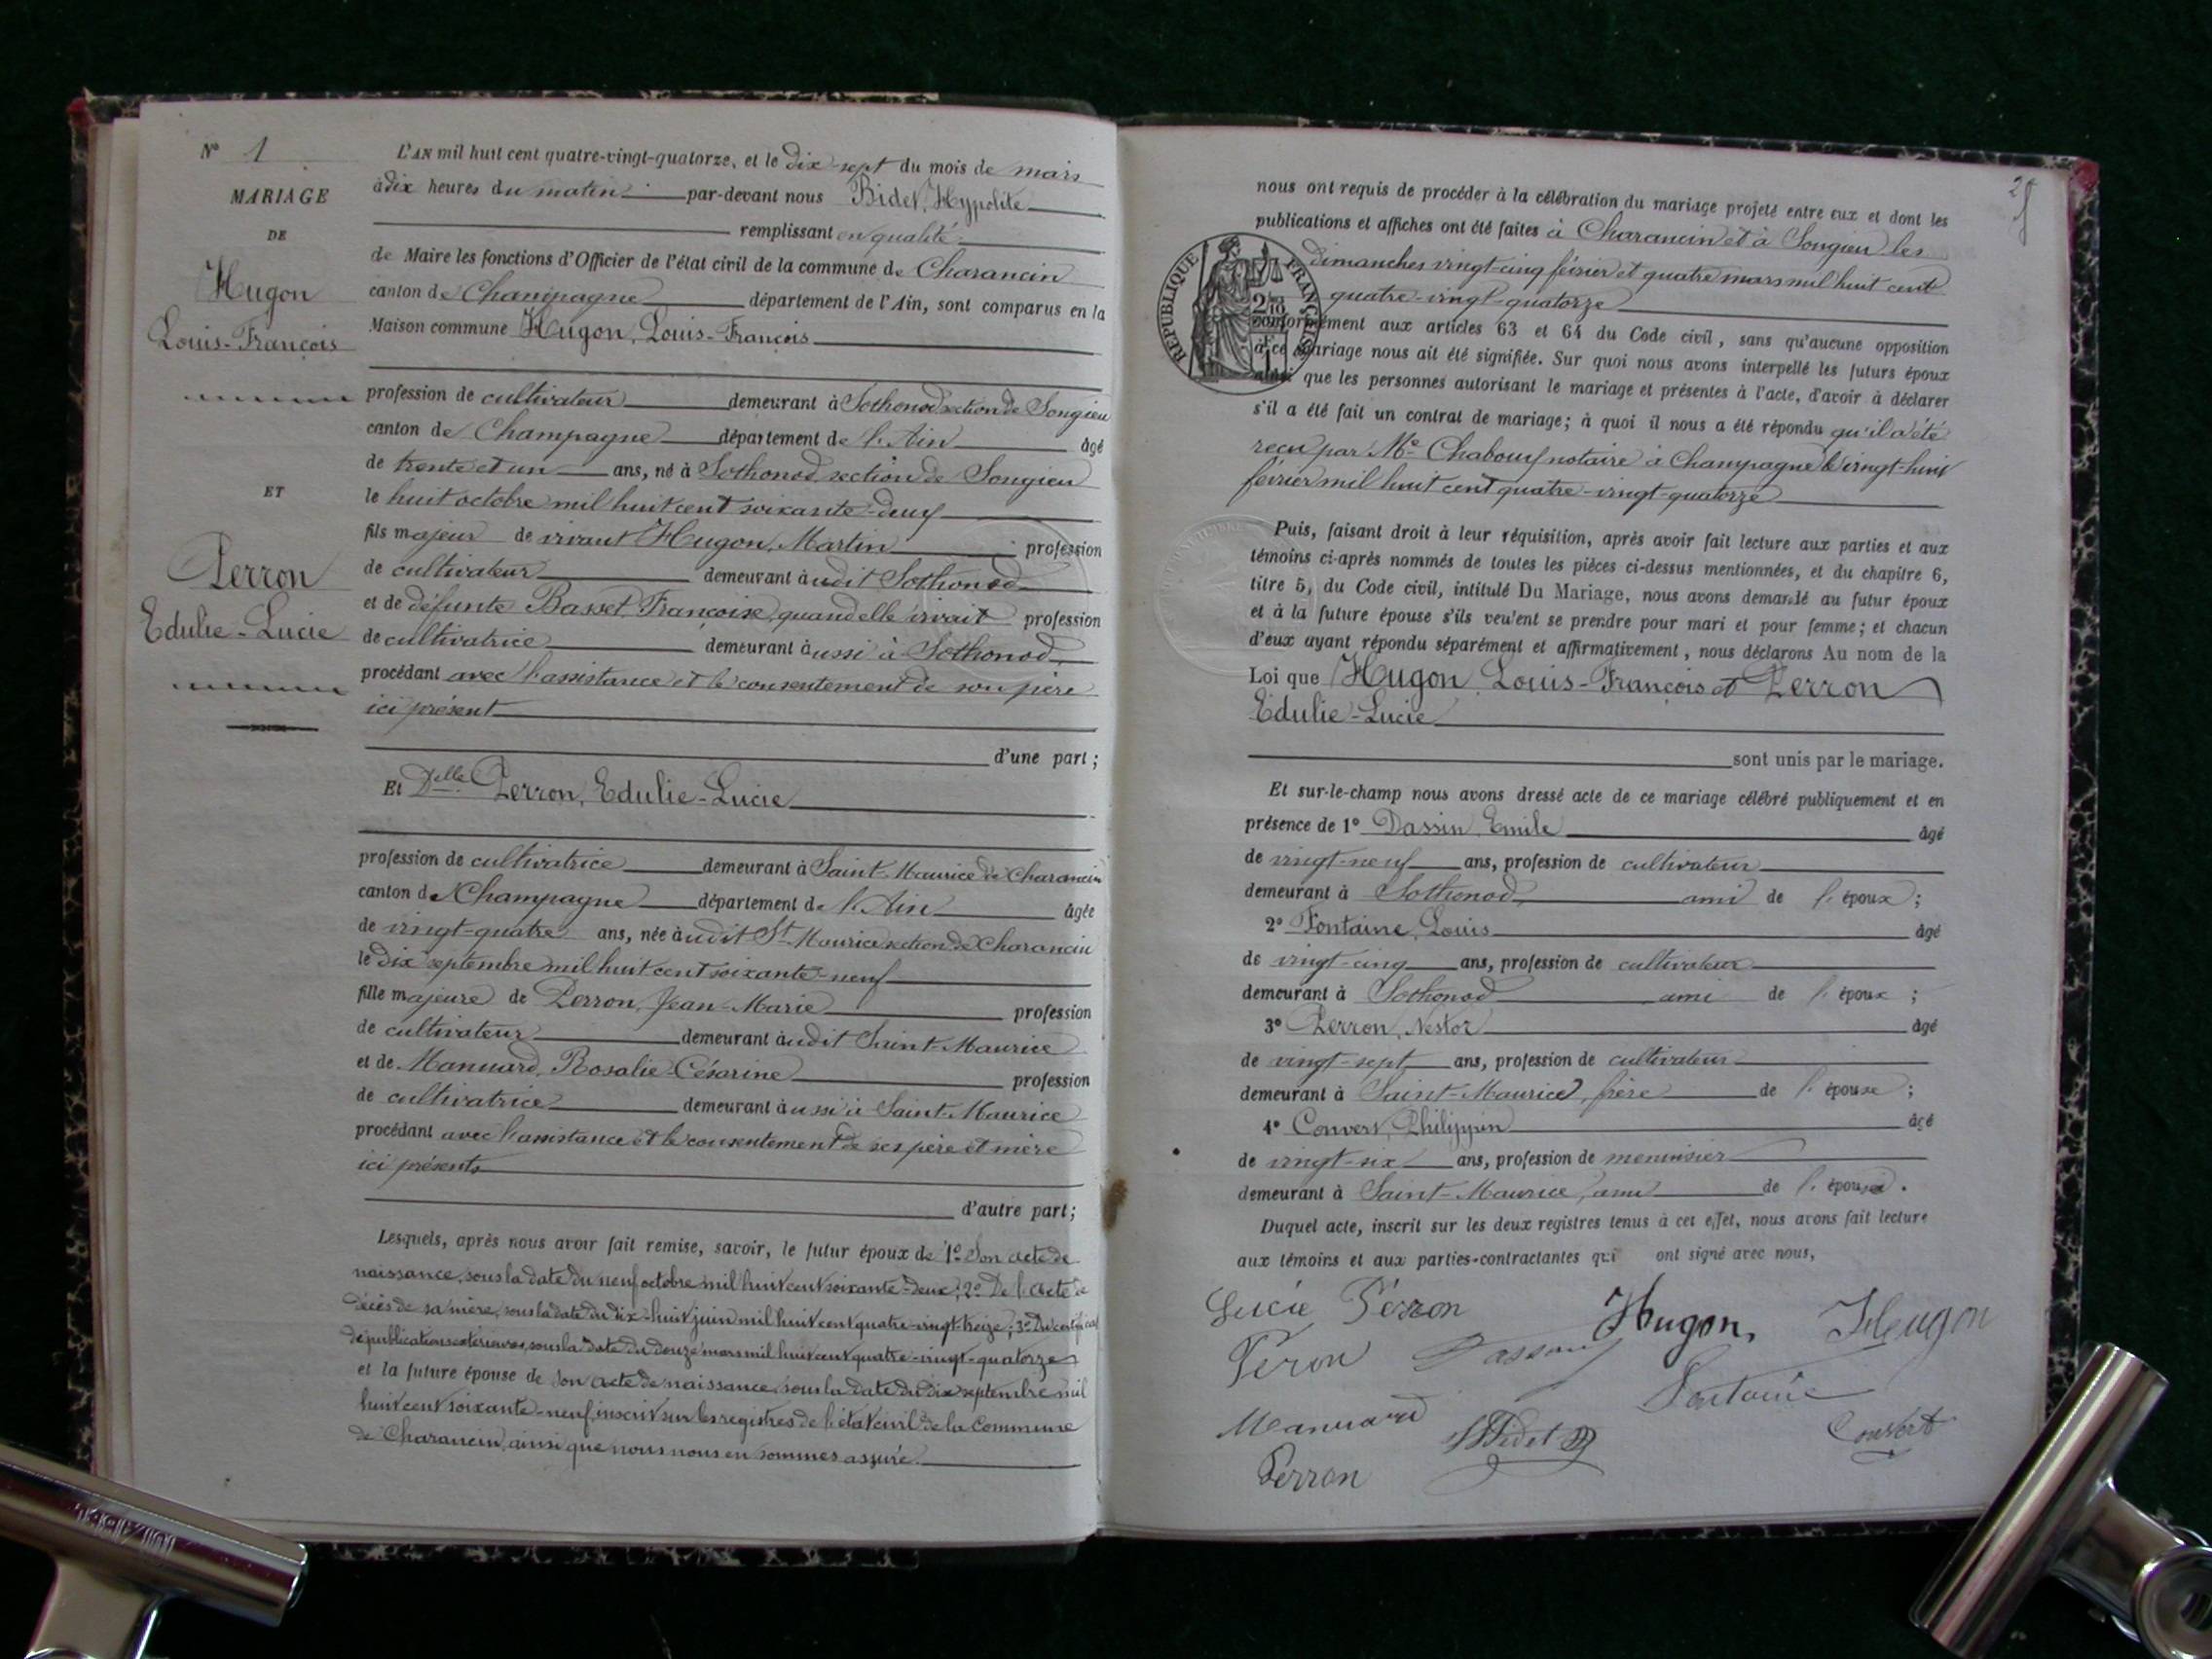 N° 1
MARIAGE
DE
Hugon
Louis-François
ET
Perron
Edulie-Lucie
L'AN mil huit cent quatre-vingt-quatorze, et le dix-sept du mois de mars
à dix heures du matin par-devant nous Bidet, Hypolite
remplissant en qualité
de Maire les fonctions d'Officier de l'état civil de la commune de Charancin
canton de Champagne département de l'Ain, sont comparus en la
Maison commune Hugon, Louis-François
profession de cultivateur demeurant à Sothonod section de Songieu
canton de Champagne département de l'Ain âgé
de trente et un ans, né à Sothonod section de Songieu
le huit octobre mil huit cent soixante-deux
fils majeur de vivant Hugon, Martin profession
de cultivateur demeurant audit Sothonod
et de défunte Basset Françoise, quand elle vivait profession
de cultivatrice demeurant aussi à Sothonod,
procédant avec l'assistance et le consentement de son père
ici présent
d'une part ;
Et Delle Perron, Edulie-Lucie
profession de cultivatrice demeurant à Saint-Maurice de Charancin
canton de Champagne département de l'Ain âgée
de vingt-quatre ans, née audit St Maurice section de Charancin
le dix septembre mil huit cent soixante-neuf
fille majeure de Perron, Jean-Marie profession
de cultivateur demeurant audit Saint-Maurice
et de Manuard, Rosalie Césarine profession
de cultivatrice demeurant aussi à Saint-Maurice
procédant avec l'assistance et le consentement de ses père et mère
ici présents
d'autre part ;
Lesquels, après nous avoir fait remise, savoir, le futur époux de 1° Son acte de
naissance, sous la date du neuf octobre mil huit cent soixante-deux ; 2° De l'acte de
décès de sa mère, sous la date du dix-huit juin mil huit cent quatre-vingt-treize ; 3° Du certificat
de publications extérieures, sous la date du douze mars mil huit cent quatre-vingt-quatorze
et la future épouse de Son acte de naissance, sous la date du dix septembre mil
huit cent soixante-neuf, inscrit sur les registres de l'état civil de la Commune
de Charancin, ainsi que nous nous en sommes assuré.
nous ont requis de procéder à la célébration du mariage projeté entre eux et dont les
publications et affiches ont été faites à Charancin et à Songieu les
dimanches vingt-cinq février et quatre mars mil huit cent
quatre-vingt-quatorze
RÉPUBLIQUE FRANÇAISE
conformément aux articles 63 et 64 du Code civil, sans qu'aucune opposition
à ce mariage nous ait été signifiée. Sur quoi nous avons interpellé les futurs époux
ainsi que les personnes autorisant le mariage et présentes à l'acte, d'avoir à déclarer
s'il a été fait un contrat de mariage ; à quoi il nous a été répondu qu'il a été
reçu par Me Chabouf notaire à Champagne le vingt-huit
février mil huit cent quatre-vingt-quatorze
Puis, faisant droit à leur réquisition, après avoir fait lecture aux parties et aux
témoins ci-après nommés de toutes les pièces ci-dessus mentionnées, et du chapitre 6,
titre 5, du Code civil, intitulé Du Mariage, nous avons demandé au futur époux
et à la future épouse s'ils veulent se prendre pour mari et pour femme ; et chacun
d'eux ayant répondu séparément et affirmativement, nous déclarons Au nom de la
Loi que Hugon, Louis-François et Perron
Edulie-Lucie
sont unis par le mariage.
Et sur-le-champ nous avons dressé acte de ce mariage célébré publiquement et en
présence de 1° Dassin, Emile âgé
de vingt-neuf ans, profession de cultivateur
demeurant à Sothonod, ami de l'époux ;
2° Fontaine, Louis âgé
de vingt-cinq ans, profession de cultivateur
demeurant à Sothonod ami de l'époux ;
3° Perron, Nestor âgé
de vingt-sept ans, profession de cultivateur
demeurant à Saint-Maurice, frère de l'épouse ;
4° Convert, Philippin âgé
de vingt-six ans, profession de menuisier
demeurant à Saint-Maurice, ami de l'épouse.
Duquel acte, inscrit sur les deux registres tenus à cet effet, nous avons fait lecture
aux témoins et aux parties-contractantes qui ont signé avec nous,
Lucie Perron Hugon, Hugon
Peron Dassin Fontaine
Manuard HBidet Convert
Perron